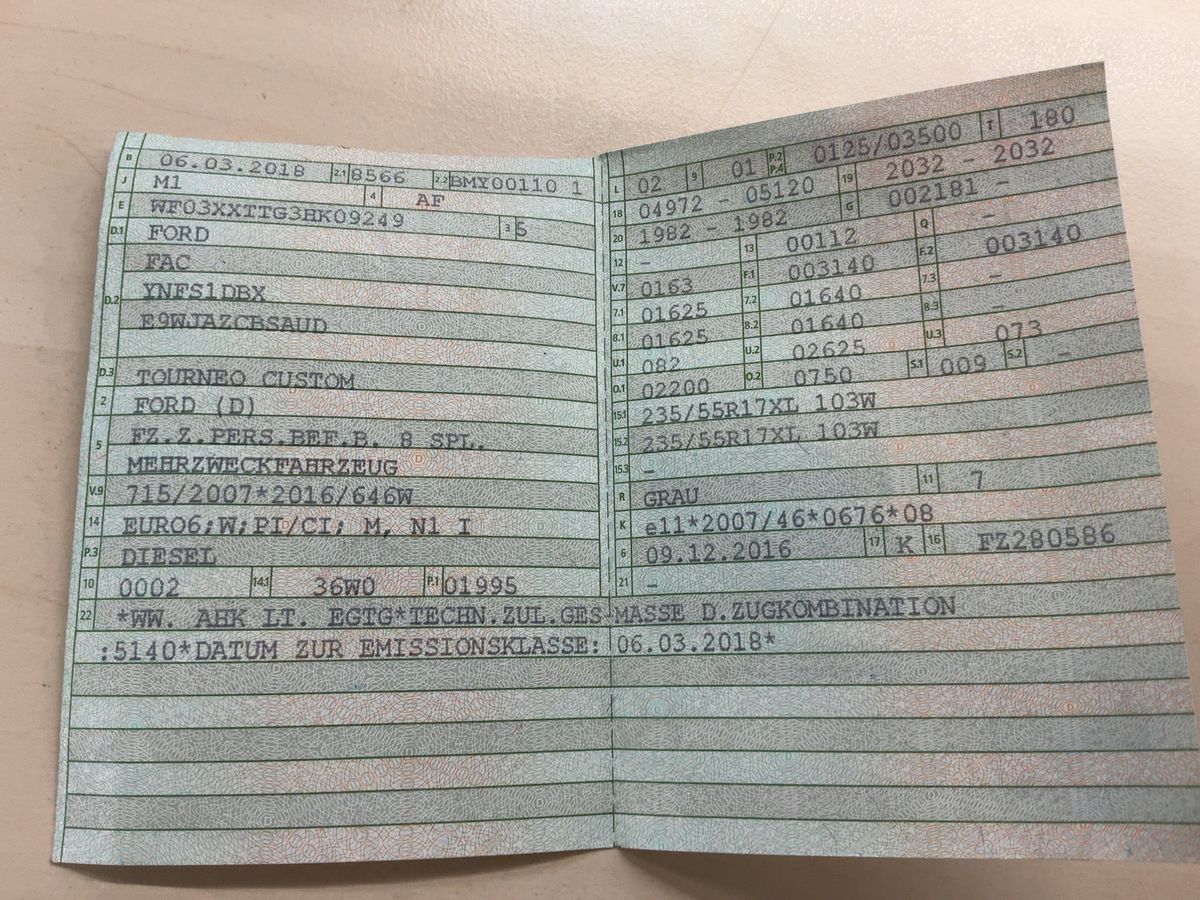 B 06.03.2018 2.1 8566 2.2 BMY00110 1
J M1 4 AF
E WF03XXTTG3HK09249 3 5
D.1 FORD
FAC
D.2 YNFS1DBX
E9WJAZCBSAUD
D.3 TOURNEO CUSTOM
2 FORD (D)
5 FZ.Z.PERS.BEF.B. 8 SPL.
MEHRZWECKFAHRZEUG
V.9 715/2007*2016/646W
14 EURO6;W;PI/CI; M, N1 I
P.3 DIESEL
10 0002 14.1 36W0 P.1 01995
L 02 9 01 P.2 P.4 0125/03500 T 180
18 04972 - 05120 19 2032 - 2032
20 1982 - 1982 G 002181 -
12 - 13 00112 Q -
V.7 0163 F.1 003140 F.2 003140
7.1 01625 7.2 01640 7.3 -
8.1 01625 8.2 01640 8.3 -
U.1 082 U.2 02625 U.3 073
O.1 02200 O.2 0750 S.1 009 S.2 -
15.1 235/55R17XL 103W
15.2 235/55R17XL 103W
15.3 -
R GRAU 11 7
K e11*2007/46*0676*08
6 09.12.2016 17 K 16 FZ280586
21 -
22 *WW. AHK LT. EGTG*TECHN.ZUL.GES-MASSE D.ZUGKOMBINATION
:5140*DATUM ZUR EMISSIONSKLASSE: 06.03.2018*